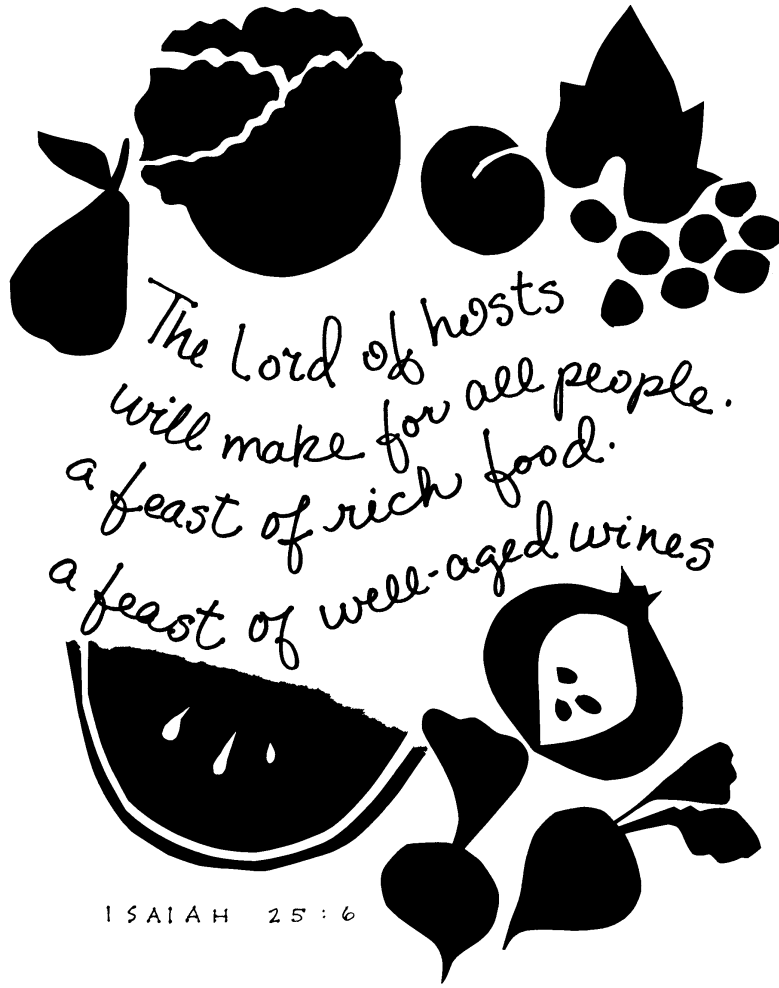 The Lord of hosts
will make for all people.
a feast of rich food.
a feast of well-aged wines
ISAIAH 25:6